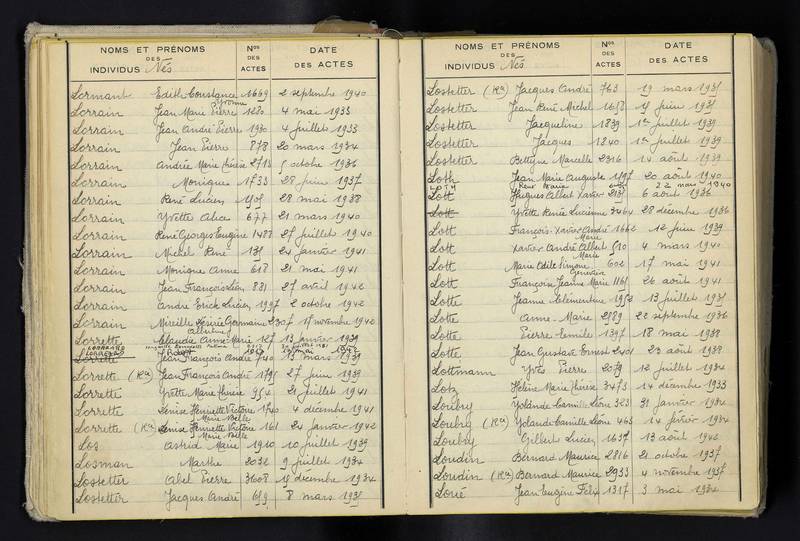 NOMS ET PRÉNOMS DES INDIVIDUS Nés | Nos DES ACTES | DATE DES ACTES
Lormant Edith Constance Yvonne 1669 2 septembre 1940
Lorrain Jean Marie Pierre 1220 4 mai 1933
Lorrain Jean André Pierre 1930 4 juillet 1933
Lorrain Jean Pierre 878 20 mars 1934
Lorrain Andrée Marie Thérèse 2713 5 octobre 1936
Lorrain Monique 1733 28 juin 1937
Lorrain René Lucien 28 mai 1938
Lorrain Yvette Alice 677 21 mars 1940
Lorrain René Georges Eugène 1488 27 juillet 1940
Lorrain Michel René 135 24 janvier 1941
Lorrain Monique Anne 618 21 mai 1941
Lorrain Jean François Léon 881 27 avril 1942
Lorrain André Erick Lucien 1997 2 octobre 1942
Lorrain Mireille Germaine 2307 15 novembre 1942
Lorrette Claudie Anne Marie 127 13 janvier 1939
Lorrette Jean François André 740 13 mars 1939
Lorrette (Ra) Jean François André 1795 27 juin 1939
Lorrette Yvette Marie Thérèse 954 21 juillet 1941
Lorrette Denise Henriette Victorine Marie Belle 1740 4 décembre 1941
Lorrette (Ra) Denise Henriette Victorine Marie Belle 161 24 janvier 1942
Los Astrid Marie 1910 10 juillet 1939
Losman Marthe 2032 9 juillet 1934
Lostetter Abel Pierre 3608 19 décembre 1934
Lostetter Jacques André 659 8 mars 1935
NOMS ET PRÉNOMS DES INDIVIDUS Nés | Nos DES ACTES | DATE DES ACTES
Lostetter (Ra) Jacques André 763 19 mars 1935
Lostetter Jean René Michel 1652 15 juin 1935
Lostetter Jacqueline 1839 1er juillet 1939
Lostetter Jacques 1840 1er juillet 1939
Lostetter Bettyne Marcelle 2316 14 août 1939
Loth Jean Marie Auguste 1597 20 août 1940
LOTH René Marie 22 mai 1940
Lott Hugues Albert Xavier 2135 6 août 1936
Lott Yvette Renée Lucienne 3464 28 décembre 1936
Lott François Xavier André Marie 1662 12 juin 1939
Lott Xavier André Albert Marie 510 4 mars 1940
Lott Marie Odile Simone Geneviève 602 17 mai 1941
Lott Françoise Jeanne Marie 1161 26 août 1941
Lott Jeanne Clémentine 1953 13 juillet 1935
Lott Anne Marie 2589 22 septembre 1936
Lott Pierre Emile 1397 18 mai 1938
Lott Jean Gustave Ernest 2401 23 août 1938
Lottmann Yves Pierre 2079 12 juillet 1934
Lotz Hélène Marie Thérèse 3473 14 décembre 1933
Loubry Yolande Camille Léone 323 31 janvier 1934
Loubry (Ra) Yolande Camille Léone 463 14 février 1934
Loubry Gilbert Lucien 1637 13 août 1942
Loudin Bernard Maurice 2816 21 octobre 1937
Loudin (Ra) Bernard Maurice 2933 4 novembre 1937
Loué Jean Eugène Félix 1317 3 mai 1934